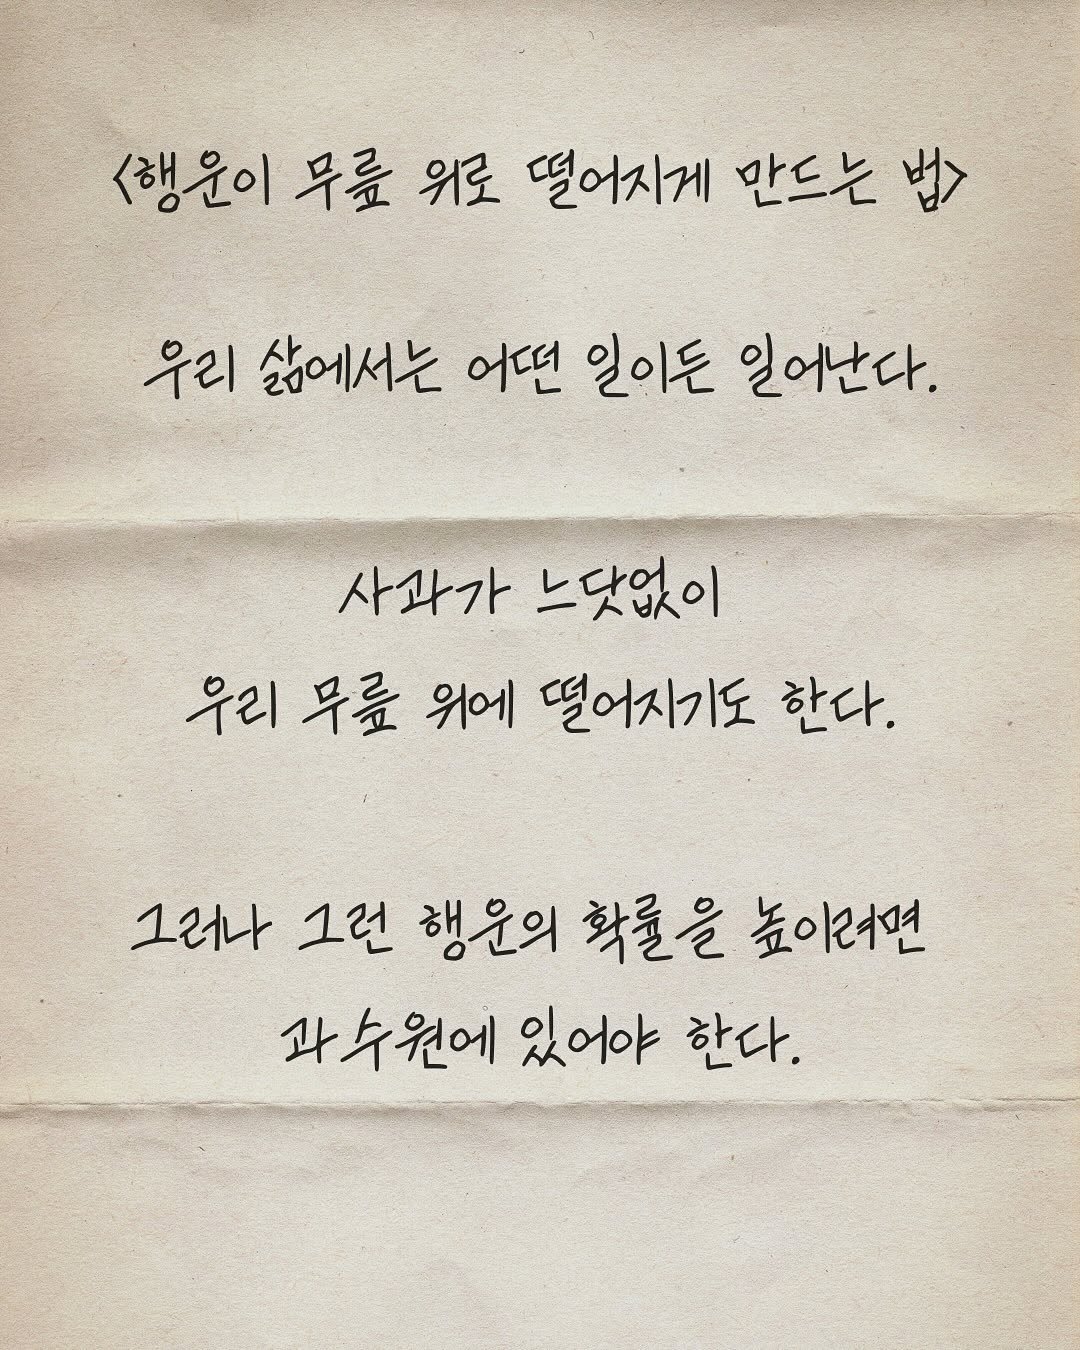 <행운이 무릎 위로 떨어지게 만드는 법>
우리 삶에서는 어떤 일이든 일어난다.
사과가 느닷없이
우리 무릎 위에 떨어지기도 한다.
그러나 그런 행운의 확률을 높이려면
과수원에 있어야 한다.